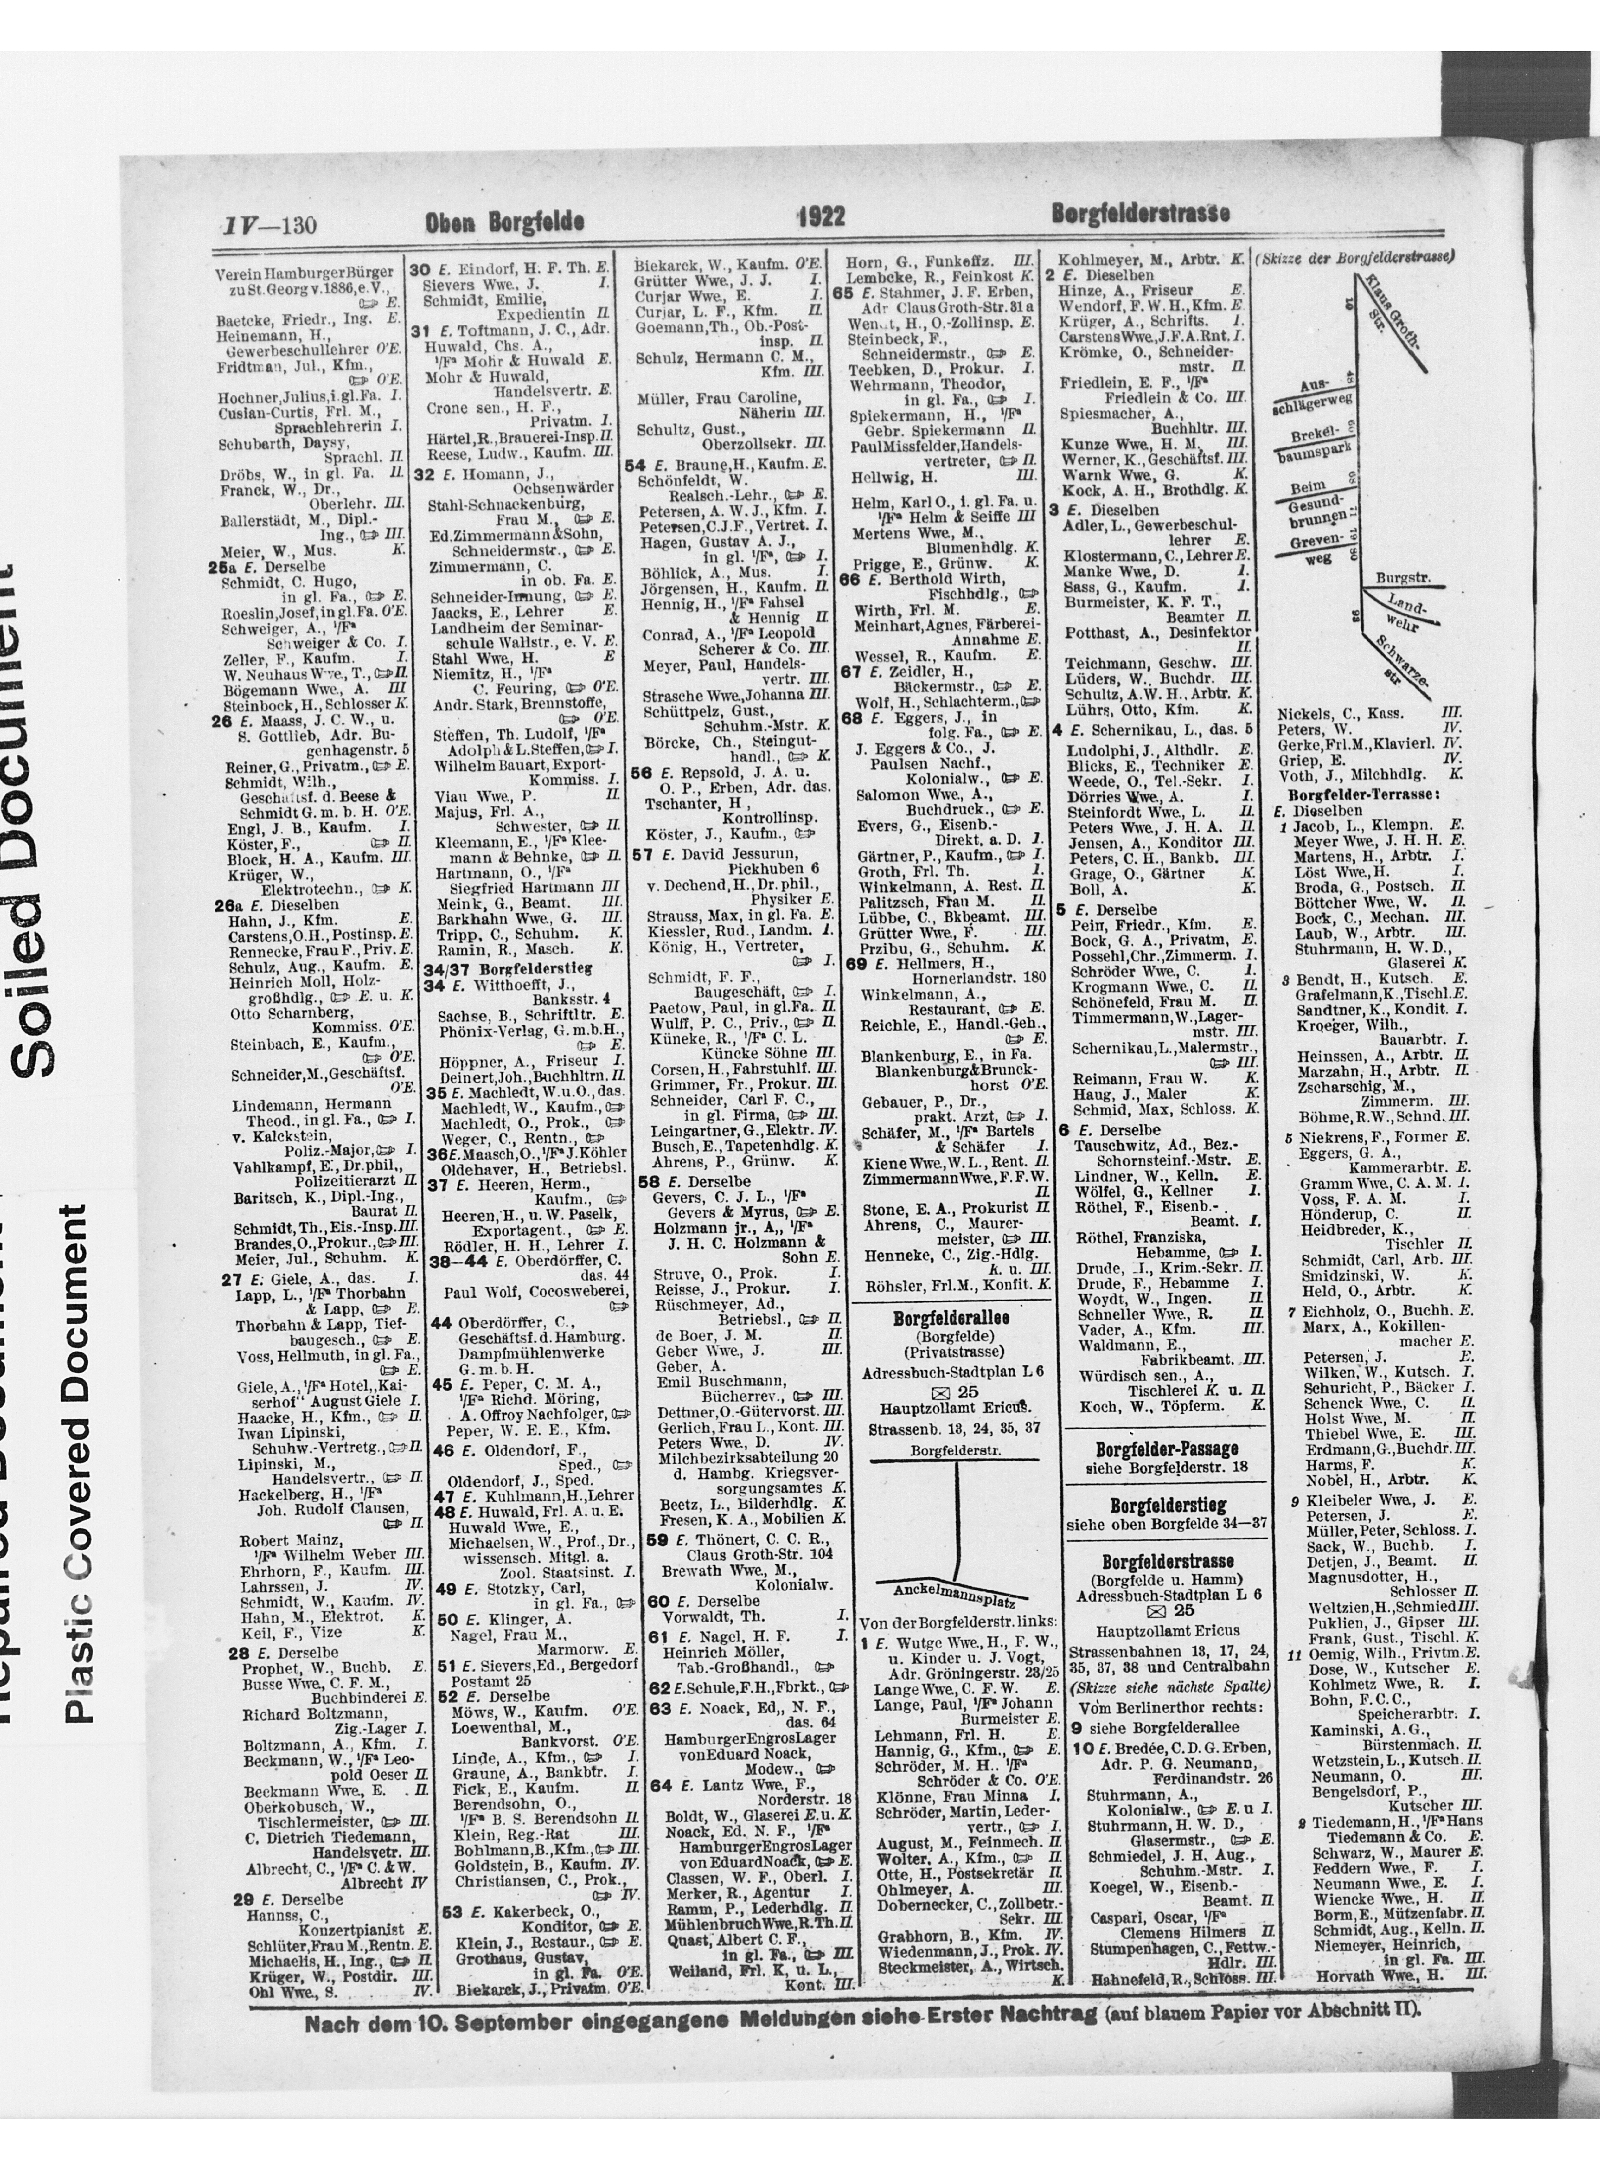 IV—130
Oben Borgfelde
1922
Borgfelderstrasse
Verein Hamburger Bürger
zu St. Georg v. 1886, e. V.,
E.
Baetcke, Friedr., Ing. E.
Heinemann, H.,
Gewerbeschullehrer O'E.
Fridtman, Jul., Kfm.,
O'E.
Hochner, Julius, i. gl. Fa. I.
Cusian-Curtis, Frl. M.,
Sprachlehrerin I.
Schubarth, Daysy,
Sprachl. II.
Dröbs, W., in gl. Fa. II.
Franck, W., Dr.,
Oberlehr. III.
Ballerstädt, M., Dipl.-
Ing., III.
Meier, W., Mus. K.
25a E. Derselbe
Schmidt, C. Hugo,
in gl. Fa., E.
Roeslin, Josef, in gl. Fa. O'E.
Schweiger, A., 1/Fa
Schweiger & Co. I.
Zeller, F., Kaufm. I.
W. Neuhaus Wwe., T., II.
Bögemann Wwe., A. III
Steinbock, H., Schlosser K.
26 E. Maass, J. C. W., u.
S. Gottlieb, Adr. Bu-
genhagenstr. 5
Reiner, G., Privatm., E.
Schmidt, Wilh.,
Geschäftsf. d. Beese &
Schmidt G. m. b. H. O'E.
Engl, J. B., Kaufm. I.
Köster, F., II.
Block, H. A., Kaufm. III.
Krüger, W.,
Elektrotechn., K.
26a E. Dieselben
Hahn, J., Kfm. E.
Carstens, O. H., Postinsp. E.
Rennecke, Frau F., Priv. E.
Schulz, Aug., Kaufm. E.
Heinrich Moll, Holz-
großhdlg., E. u. K.
Otto Scharnberg,
Kommiss. O'E.
Steinbach, E., Kaufm.,
O'E.
Schneider, M., Geschäftsf.
O'E.
Lindemann, Hermann
Theod., in gl. Fa., I.
v. Kalckstein,
Poliz.-Major, I.
Vahlkampf, E., Dr. phil.,
Polizeitierarzt II.
Baritsch, K., Dipl.-Ing.,
Baurat II.
Schmidt, Th., Eis.-Insp. III.
Brandes, O., Prokur., III.
Meier, Jul., Schuhm. K.
27 E. Giele, A., das. I.
Lapp, L., 1/Fa Thorbahn
& Lapp, E.
Thorbahn & Lapp, Tief-
baugesch., E.
Voss, Hellmuth, in gl. Fa.,
E.
Giele, A., 1/Fa Hotel „Kai-
serhof" August Giele I.
Haacke, H., Kfm., II.
Iwan Lipinski,
Schuhw.-Vertretg., II.
Lipinski, M.,
Handelsvertr., II.
Hackelberg, H., 1/Fa
Joh. Rudolf Clausen,
II.
Robert Mainz,
1/Fa Wilhelm Weber III.
Ehrhorn, F., Kaufm. III.
Lahrssen, J. IV.
Schmidt, W., Kaufm. IV.
Hahn, M., Elektrot. K.
Keil, F., Vize K.
28 E. Derselbe
Prophet, W., Buchb. E.
Busse Wwe., C. F. M.,
Buchbinderei E.
Richard Boltzmann,
Zig.-Lager I.
Boltzmann, A., Kfm. I.
Beckmann, W., 1/Fa Leo-
pold Oeser II.
Beckmann Wwe., E. II.
Oberkobusch, W.,
Tischlermeister, III.
C. Dietrich Tiedemann,
Handelsvetr. III.
Albrecht, C., 1/Fa C. & W.
Albrecht IV
29 E. Derselbe
Hannss, C.,
Konzertpianist E.
Schlüter, Frau M., Rentn. E.
Michaelis, H., Ing., II.
Krüger, W., Postdir. III.
Ohl Wwe., S. IV.
30 E. Eindorf, H. F. Th. E.
Sievers Wwe., J. I.
Schmidt, Emilie,
Expedientin II.
31 E. Toftmann, J. C., Adr.
Huwald, Chs. A.,
1/Fa Mohr & Huwald E.
Mohr & Huwald,
Handelsvertr. E.
Crone sen., H. F.,
Privatm. I.
Härtel, R., Brauerei-Insp. II.
Reese, Ludw., Kaufm. III.
32 E. Homann, J.,
Ochsenwärder
Stahl-Schnackenburg,
Frau M., E.
Ed. Zimmermann & Sohn,
Schneidermstr., E.
Zimmermann, C.
in ob. Fa. E.
Schneider-Innung, E.
Jaacks, E., Lehrer E.
Landheim der Seminar-
schule Wallstr., e. V. E.
Stahl Wwe., H. E
Niemitz, H., 1/Fa
C. Feuring, O'E.
Andr. Stark, Brennstoffe,
O'E.
Steffen, Th. Ludolf, 1/Fa
Adolph & L. Steffen, I.
Wilhelm Bauart, Export-
Kommiss. I.
Viau Wwe., P. II.
Majus, Frl. A.,
Schwester, II.
Kleemann, E., 1/Fa Klee-
mann & Behnke, II.
Hartmann, O., 1/Fa
Siegfried Hartmann III
Meink, G., Beamt. III.
Barkhahn Wwe., G. III.
Tripp, C., Schuhm. K.
Ramin, R., Masch. K.
34/37 Borgfelderstieg
34 E. Witthoefft, J.,
Banksstr. 4
Sachse, B., Schriftltr. E.
Phönix-Verlag, G. m. b. H.,
E.
Höppner, A., Friseur I.
Deinert, Joh., Buchhltrn. II.
35 E. Machledt, W. u. O., das.
Machledt, W., Kaufm.,
Machledt, O., Prok.,
Weger, C., Rentn.,
36 E. Maasch, O., 1/Fa J. Köhler
Oldehaver, H., Betriebsl.
37 E. Heeren, Herm.,
Kaufm.,
Heeren, H., u. W. Paselk,
Exportagent., E.
Rödler, H. H., Lehrer I.
38—44 E. Oberdörffer, C.
das. 44
Paul Wolf, Cocosweberei,
44 Oberdörffer, C.,
Geschäftsf. d. Hamburg.
Dampfmühlenwerke
G. m. b. H.
45 E. Peper, C. M. A.,
1/Fa Richd. Möring,
A. Offroy Nachfolger,
Peper, W. E. E., Kfm.
46 E. Oldendorf, F.,
Sped.,
Oldendorf, J., Sped.
47 E. Kuhlmann, H., Lehrer
48 E. Huwald, Frl. A. u. E.
Huwald Wwe., E.,
Michaelsen, W., Prof., Dr.,
wissensch. Mitgl. a.
Zool. Staatsinst. I.
49 E. Stotzky, Carl,
in gl. Fa.,
50 E. Klinger, A.
Nagel, Frau M.,
Marmorw. E.
51 E. Sievers, Ed., Bergedorf
Postamt 25
52 E. Derselbe
Möws, W., Kaufm. O'E.
Loewenthal, M.,
Bankvorst. O'E.
Linde, A., Kfm., I.
Graune, A., Bankbfr. I.
Fick, E., Kaufm. II.
Berendsohn, O.,
1/Fa B. S. Berendsohn II.
Klein, Reg.-Rat III.
Bohlmann, B., Kfm., III.
Goldstein, B., Kaufm. IV.
Christiansen, C., Prok.,
IV.
53 E. Kakerbeck, O.,
Konditor, E.
Klein, J., Restaur., E.
Grothaus, Gustav,
in gl. Fa. O'E.
Biekarck, J., Privatm. O'E.
Biekarck, W., Kaufm. O'E.
Grütter Wwe., J. J. I.
Curjar Wwe., E. I.
Curjar, L. F., Kfm. II.
Goemann, Th., Ob.-Post-
insp. II.
Schulz, Hermann C. M.,
Kfm. III.
Müller, Frau Caroline,
Näherin III.
Schultz, Gust.,
Oberzollsekr. III.
54 E. Braune, H., Kaufm. E.
Schönfeldt, W.
Realsch.-Lehr., E.
Petersen, A. W. J., Kfm. I.
Petersen, C. J. F., Vertret. I.
Hagen, Gustav A. J.,
in gl. 1/Fa, I.
Böhlick, A., Mus. I.
Jörgensen, H., Kaufm. II.
Hennig, H., 1/Fa Fahsel
& Hennig II.
Conrad, A., 1/Fa Leopold
Scherer & Co. III.
Meyer, Paul, Handels-
vertr. III.
Strasche Wwe., Johanna III.
Schüttpelz, Gust.,
Schuhm.-Mstr. K.
Börcke, Ch., Steingut-
handl., K.
56 E. Repsold, J. A. u.
O. P., Erben, Adr. das.
Tschanter, H.,
Kontrollinsp.
Köster, J., Kaufm.,
57 E. David Jessurun,
Pickhuben 6
v. Dechend, H., Dr. phil.,
Physiker E.
Strauss, Max, in gl. Fa. E.
Kiessler, Rud., Landm. I.
König, H., Vertreter,
I.
Schmidt, F. F.,
Baugeschäft, I.
Paetow, Paul, in gl. Fa. II.
Wulff, P. C., Priv., II.
Küneke, R., 1/Fa C. L.
Küncke Söhne III.
Corsen, H., Fahrstuhlf. III.
Grimmer, Fr., Prokur. III.
Schneider, Carl F. C.,
in gl. Firma, III.
Leingartner, G., Elektr. IV.
Busch, E., Tapetenhdlg. K.
Ahrens, P., Grünw. K.
58 E. Derselbe
Gevers, C. J. L., 1/Fa
Gevers & Myrus, E.
Holzmann jr., A., 1/Fa
J. H. C. Holzmann &
Sohn E.
Struve, O., Prok. I.
Reisse, J., Prokur. I.
Rüschmeyer, Ad.,
Betriebsl., II.
de Boer, J. M. II.
Geber Wwe., J. III.
Geber, A.
Emil Buschmann,
Bücherrev., III.
Dettmer, O.-Gütervorst. III.
Gerlich, Frau L., Kont. III.
Peters Wwe., D. IV.
Milchbezirksabteilung 20
d. Hambg. Kriegsver-
sorgungsamtes K.
Beetz, L., Bilderhdlg. K.
Fresen, K. A., Mobilien K.
59 E. Thönert, C. C. R.,
Claus Groth-Str. 104
Brewath Wwe., M.,
Kolonialw.
60 E. Derselbe
Vorwaldt, Th. I.
61 E. Nagel, H. F. I.
Heinrich Möller,
Tab.-Großhandl.,
62 E. Schule, F. H., Fbrkt.,
63 E. Noack, Ed., N. F.,
das. 64
Hamburger Engros Lager
von Eduard Noack,
Modew.,
64 E. Lantz Wwe., F.,
Norderstr. 18
Boldt, W., Glaserei E. u. K.
Noack, Ed. N. F., 1/Fa
Hamburger Engros Lager
von Eduard Noack, E.
Classen, W. F., Oberl. I.
Merker, R., Agentur I.
Ramm, P., Lederhdlg. II.
Mühlenbruch Wwe., R. Th. II.
Quast, Albert C. F.,
in gl. Fa., III.
Weiland, Frl. K. u. L.,
Kont. III.
Horn, G., Funkoffz. III.
Lembcke, R., Feinkost K.
65 E. Stahmer, J. F. Erben,
Adr Claus Groth-Str. 31a
Wendt, H., O.-Zollinsp. E.
Steinbeck, F.,
Schneidermstr., E.
Teebken, D., Prokur. I.
Wehrmann, Theodor,
in gl. Fa., I.
Spiekermann, H., 1/Fa
Gebr. Spiekermann II.
Paul Missfelder, Handels-
vertreter, II.
Hellwig, H. III.
Helm, Karl O., i. gl. Fa. u.
1/Fa Helm & Seiffe III
Mertens Wwe., M.,
Blumenhdlg. K.
Prigge, E., Grünw. K.
66 E. Berthold Wirth,
Fischhdlg.,
Wirth, Frl. M. E.
Meinhart, Agnes, Färberei-
Annahme E.
Wessel, R., Kaufm. E.
67 E. Zeidler, H.,
Bäckermstr., E.
Wolf, H., Schlachterm.,
68 E. Eggers, J., in
folg. Fa., E.
J. Eggers & Co., J.
Paulsen Nachf.,
Kolonialw., E.
Salomon Wwe., A.,
Buchdruck., E.
Evers, G., Eisenb.-
Direkt, a. D. I.
Gärtner, P., Kaufm., I.
Groth, Frl. Th. I.
Winkelmann, A. Rest. II.
Palitzsch, Frau M. II.
Lübbe, C., Bkbeamt. III.
Grütter Wwe., F. III.
Przibu, G., Schuhm. K.
69 E. Hellmers, H.,
Hornerlandstr. 180
Winkelmann, A.,
Restaurant, E.
Reichle, E., Handl.-Geh.,
E.
Blankenburg, E., in Fa.
Blankenburg & Brunck-
horst O'E.
Gebauer, P., Dr.,
prakt. Arzt, I.
Schäfer, M., 1/Fa Bartels
& Schäfer I.
Kiene Wwe., W. L., Rent. II.
Zimmermann Wwe., F. F. W.
II.
Stone, E. A., Prokurist II.
Ahrens, C., Maurer-
meister, III.
Henneke, C., Zig.-Hdlg.
K. u. III.
Röhsler, Frl. M., Konfit. K.
Borgfelderallee
(Borgfelde)
(Privatstrasse)
Adressbuch-Stadtplan L 6
25
Hauptzollamt Ericus.
Strassenb. 13, 24, 35, 37
Borgfelderstr.
Anckelmannsplatz
Von der Borgfelderstr. links:
1 E. Wutge Wwe., H., F. W.,
u. Kinder u. J. Vogt,
Adr. Gröningerstr. 23/25
Lange Wwe., C. F. W. E.
Lange, Paul, 1/Fa Johann
Burmeister E.
Lehmann, Frl. H. E.
Hannig, G., Kfm., E.
Schröder, M. H., 1/Fa
Schröder & Co. O'E.
Klönne, Frau Minna I.
Schröder, Martin, Leder-
vertr., I.
August, M., Feinmech. II.
Wolter, A., Kfm., II.
Otte, H., Postsekretär II.
Ohlmeyer, A. III.
Dobernecker, C., Zollbetr.-
Sekr. III.
Grabhorn, B., Kfm. IV.
Wiedenmann, J., Prok. IV.
Steckmeister, A., Wirtsch.
K.
Kohlmeyer, M., Arbtr. K.
2 E. Dieselben
Hinze, A., Friseur E.
Wendorf, F. W. H., Kfm. E.
Krüger, A., Schrifts. I.
Carstens Wwe., J. F. A. Rnt. I.
Krömke, O., Schneider-
mstr. II.
Friedlein, E. F., 1/Fa
Friedlein & Co. III.
Spiesmacher, A.,
Buchhltr. III.
Kunze Wwe., H. M. III.
Werner, K., Geschäftsf. III.
Warnk Wwe., G. K.
Kock, A. H., Brothdlg. K.
3 E. Dieselben
Adler, L., Gewerbeschul-
lehrer E.
Klostermann, C., Lehrer E.
Manke Wwe., D. I.
Sass, G., Kaufm. I.
Burmeister, K. F. T.,
Beamter II.
Potthast, A., Desinfektor
II.
Teichmann, Geschw. III.
Lüders, W., Buchdr. III.
Schultz, A. W. H., Arbtr. K.
Lührs, Otto, Kfm. K.
4 E. Schernikau, L., das. 5
Ludolphi, J., Althdlr. E.
Blicks, E., Techniker E.
Weede, O., Tel.-Sekr. I.
Dörries Wwe., A. I.
Steinfordt Wwe., L. II.
Peters Wwe., J. H. A. II.
Jensen, A., Konditor III.
Peters, C. H., Bankb. III.
Grage, O., Gärtner K.
Boll, A. K.
5 E. Derselbe
Pein, Friedr., Kfm. E.
Bock, G. A., Privatm. E.
Possehl, Chr., Zimmerm. I.
Schröder Wwe., C. I.
Krogmann Wwe., C. II.
Schönefeld, Frau M. II.
Timmermann, W., Lager-
mstr. III.
Schernikau, L., Malermstr.,
III.
Reimann, Frau W. K.
Haug, J., Maler K.
Schmid, Max, Schloss. K.
6 E. Derselbe
Tauschwitz, Ad., Bez.-
Schornsteinf.-Mstr. E.
Lindner, W., Kelln. E.
Wölfel, G., Kellner I.
Röthel, F., Eisenb.-
Beamt. I.
Röthel, Franziska,
Hebamme, I.
Drude, J., Krim.-Sekr. II.
Drude, F., Hebamme I.
Woydt, W., Ingen. II.
Schneller Wwe., R. II.
Vader, A., Kfm. III.
Waldmann, E.,
Fabrikbeamt. III.
Würdisch sen., A.,
Tischlerei K. u. II.
Koch, W., Töpferm. K.
Borgfelder-Passage
siehe Borgfelderstr. 18
Borgfelderstieg
siehe oben Borgfelde 34—37
Borgfelderstrasse
(Borgfelde u. Hamm)
Adressbuch-Stadtplan L 6
25
Hauptzollamt Ericus
Strassenbahnen 13, 17, 24,
35, 37, 38 und Centralbahn
(Skizze siehe nächste Spalte)
Vom Berlinerthor rechts:
9 siehe Borgfelderallee
10 E. Bredée, C. D. G. Erben,
Adr. P. G. Neumann,
Ferdinandstr. 26
Stuhrmann, A.,
Kolonialw., E. u I.
Stuhrmann, H. W. D.,
Glasermstr., E.
Schmiedel, J. H. Aug.,
Schuhm.-Mstr. I.
Koegel, W., Eisenb.-
Beamt. II.
Caspari, Oscar, 1/Fa
Clemens Hilmers II.
Stumpenhagen, C., Fettw.-
Hdlr. III.
Hahnefeld, R., Schloss. III.
(Skizze der Borgfelderstrasse)
Klaus Groth-
Str.
10
48
Aus-
schlägerweg
60
Brekel-
baumspark
68
Beim
Gesund-
brunnen
71
79
80
Greven-
weg
Burgstr.
Land-
wehr
93
Schwarze-
str
Nickels, C., Kass. III.
Peters, W. IV.
Gerke, Frl. M., Klavierl. IV.
Griep, E. IV.
Voth, J., Milchhdlg. K.
Borgfelder-Terrasse:
E. Dieselben
1 Jacob, L., Klempn. E.
Meyer Wwe., J. H. H. E.
Martens, H., Arbtr. I.
Löst Wwe., H. I.
Broda, G., Postsch. II.
Böttcher Wwe., W. II.
Bock, C., Mechan. III.
Laub, W., Arbtr. III.
Stuhrmann, H. W. D.,
Glaserei K.
3 Bendt, H., Kutsch. E.
Grafelmann, K., Tischl. E.
Sandtner, K., Kondit. I.
Kroeger, Wilh.,
Bauarbtr. I.
Heinssen, A., Arbtr. II.
Marzahn, H., Arbtr. II.
Zscharschig, M.,
Zimmerm. III.
Böhme, R. W., Schnd. III.
5 Niekrens, F., Former E.
Eggers, G. A.,
Kammerarbtr. E.
Gramm Wwe., C. A. M. I.
Voss, F. A. M. I.
Hönderup, C. II.
Heidbreder, K.,
Tischler II.
Schmidt, Carl, Arb. III.
Smidzinski, W. K.
Held, O., Arbtr. K.
7 Eichholz, O., Buchh. E.
Marx, A., Kokillen-
macher E.
Petersen, J. E.
Wilken, W., Kutsch. I.
Schuricht, P., Bäcker I.
Schenck Wwe., C. II.
Holst Wwe., M. II.
Thiebel Wwe., E. III.
Erdmann, G., Buchdr. III.
Harms, F. K.
Nobel, H., Arbtr. K.
9 Kleibeler Wwe., J. E.
Petersen, J. E.
Müller, Peter, Schloss. I.
Sack, W., Buchb. I.
Detjen, J., Beamt. II.
Magnusdotter, H.,
Schlosser II.
Weltzien, H., Schmied III.
Puklien, J., Gipser III.
Frank, Gust., Tischl. K.
11 Oemig, Wilh., Privtm. E.
Dose, W., Kutscher E.
Kohlmetz Wwe., R. I.
Bohn, F. C. C.,
Speicherarbtr. I.
Kaminski, A. G.,
Bürstenmach. II.
Wetzstein, L., Kutsch. II.
Neumann, O. III.
Bengelsdorf, P.,
Kutscher III.
2 Tiedemann, H., 1/Fa Hans
Tiedemann & Co. E.
Schwarz, W., Maurer E.
Feddern Wwe., F. I.
Neumann Wwe., E. I.
Wiencke Wwe., H. II.
Borm, E., Mützenfabr. II.
Schmidt, Aug., Kelln. II.
Niemeyer, Heinrich,
in gl. Fa. III.
Horvath Wwe., H. III.
Nach dem 10. September eingegangene Meldungen siehe Erster Nachtrag (auf blauem Papier vor Abschnitt II).
Soiled Document
Plastic Covered Document